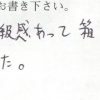 お書き下さい。
級感あって箱
た。